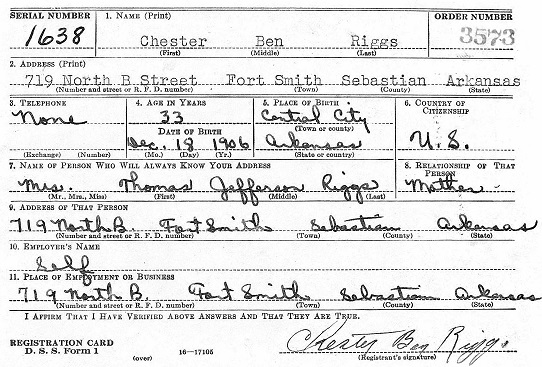 SERIAL NUMBER 1. NAME (Print) ORDER NUMBER
1638 Chester Ben Riggs 3573
(First) (Middle) (Last)
2. ADDRESS (Print)
719 North B Street Fort Smith Sebastian Arkansas
(Number and street or R. F. D. number) (Town) (County) (State)
3. TELEPHONE 4. AGE IN YEARS 5. PLACE OF BIRTH 6. COUNTRY OF CITIZENSHIP
None 33 Central City
(Town or county)
DATE OF BIRTH
Dec. 18 1906 Arkansas U.S.
(Exchange) (Number) (Mo.) (Day) (Yr.) (State or country)
7. NAME OF PERSON WHO WILL ALWAYS KNOW YOUR ADDRESS 8. RELATIONSHIP OF THAT PERSON
Mrs. Thomas Jefferson Riggs Mother
(Mr., Mrs., Miss) (First) (Middle) (Last)
9. ADDRESS OF THAT PERSON
719 North B. Fort Smith Sebastian Arkansas
(Number and street or R. F. D. number) (Town) (County) (State)
10. EMPLOYER'S NAME
Self
11. PLACE OF EMPLOYMENT OR BUSINESS
719 North B. Fort Smith Sebastian Arkansas
(Number and street or R. F. D. number) (Town) (County) (State)
I AFFIRM THAT I HAVE VERIFIED ABOVE ANSWERS AND THAT THEY ARE TRUE.
REGISTRATION CARD Chester Ben Riggs
D. S. S. Form 1 (over) 16—17105 (Registrant's signature)